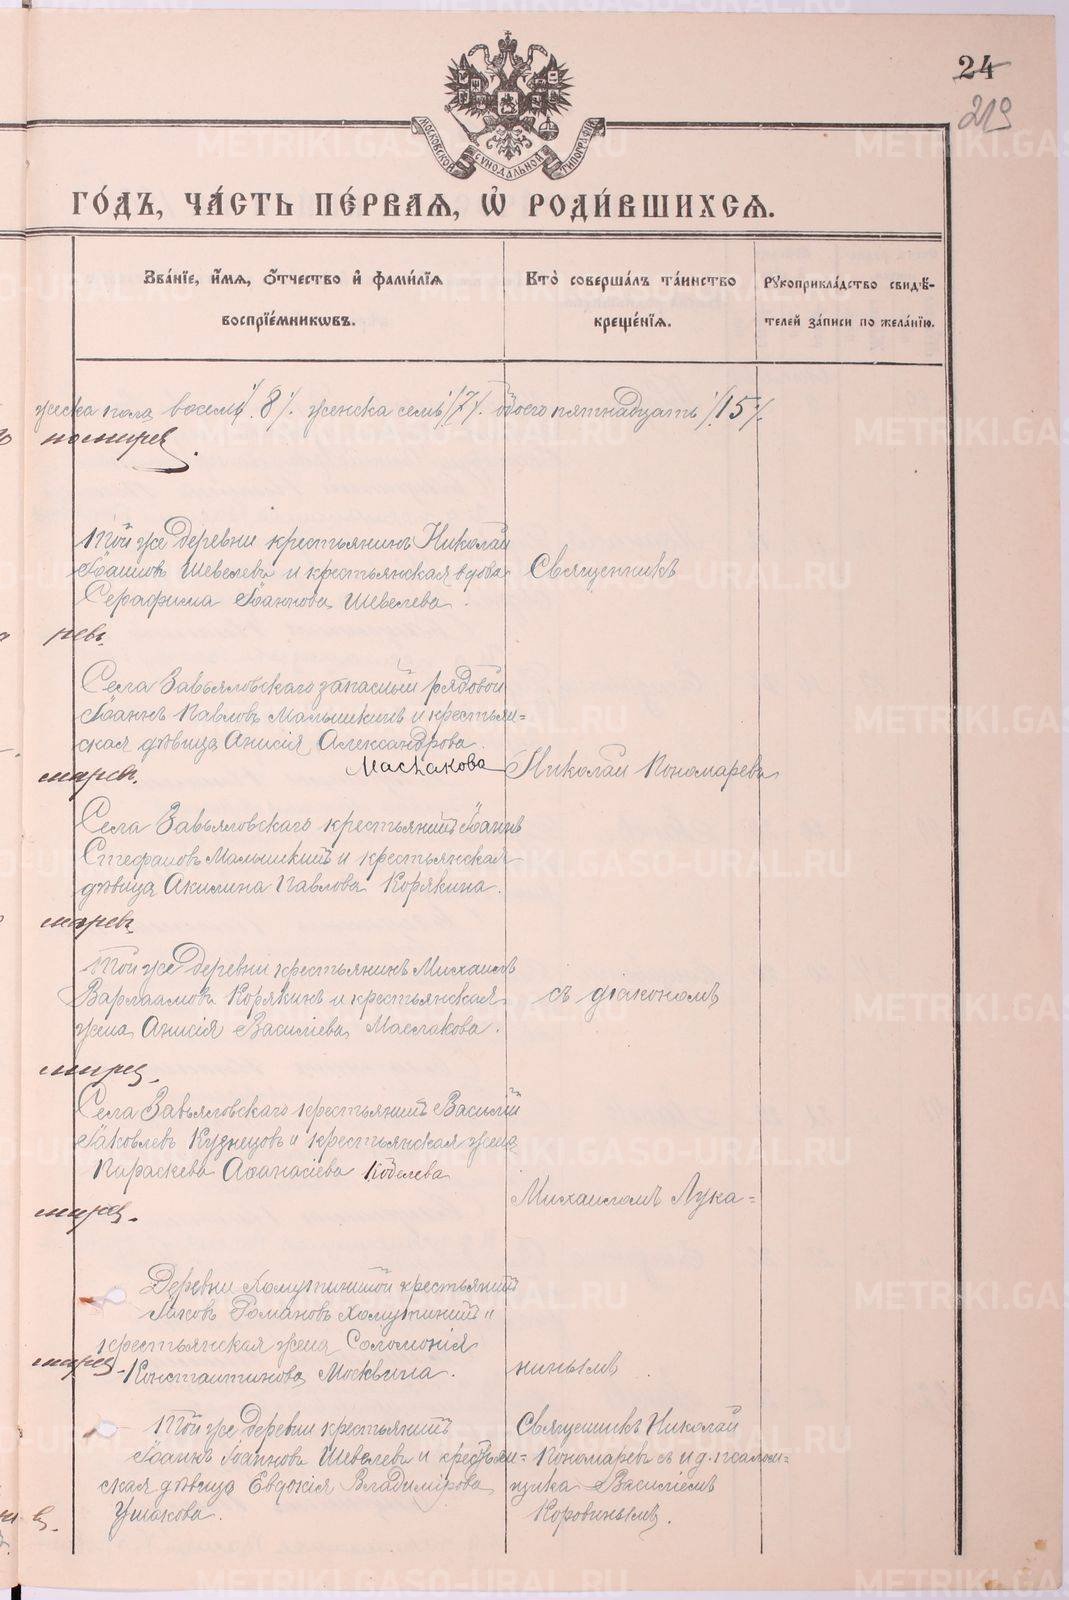 24
219
МОСКОВСКОЙ СѴНОДАЛЬНОЙ ТИПОГРАФІИ
ГО́ДЪ, ЧА́СТЬ ПЕ́РВАЯ, Ѡ҆ РОДИ́ВШИХСЯ.
Зва́нїе, и҆́мя, ѻ҆́тчество и҆ фами́лїя воспрїе́мникωвъ.
Кто̀ соверша́лъ та́инство креще́нїя.
Рꙋкоприкла́дство свидѣ́телей за́писи по жела́нїю.
жеска пола восемь /8/. женска семь /7/. обоего пятнадцать /15/.
Той же деревни крестьянинъ Николай
Іоанновъ Шевелевъ и крестьянская вдова
Серафима Іоаннова Шевелева.
Священникъ
ревъ
Села Завьяловскаго запасный рядовой
Іоаннъ Павловъ Малышкинъ и крестьян=
ская дѣвица Анисія Александрова
Маслакова
Николай Пономаревъ
маревъ.
Села Завьяловскаго крестьянинъ Іоаннъ
Стефановъ Малышкинъ и крестьянская
дѣвица Акилина Павлова Корякина.
маревъ
Той же деревни крестьянинъ Михаилъ
Варлаамовъ Корякинъ и крестьянская
жена Анисія Василіева Маслакова.
съ діакономъ
Села Завьяловскаго крестьянинъ Василій
Іаковлевъ Кузнецовъ и крестьянская жена
Параскева Аѳанасіева Кобелева
Михаиломъ Лука=
Деревни Хомутининой крестьянинъ
Іаковъ Романовъ Хомутининъ и
крестьянская жена Соломонія
Константинова Москвина.
нинымъ
Той же деревни крестьянинъ
Іоаннъ Іоанновъ Шевелевъ и крестьян=
ская дѣвица Евдокія Владимірова
Ушакова.
Священникъ Николай
Пономаревъ съ и.д. псалом=
щика Василіемъ
Коровинымъ.